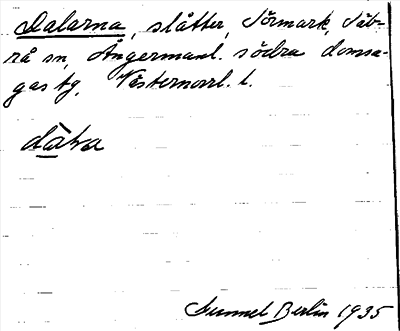 Dalarna, slåtter, Sörmark, Säb-
rå sn, Ångermanl. södra domsa-
gas tg, Västernorrl. l.
dàṛa
Gunnel Berlin 1935